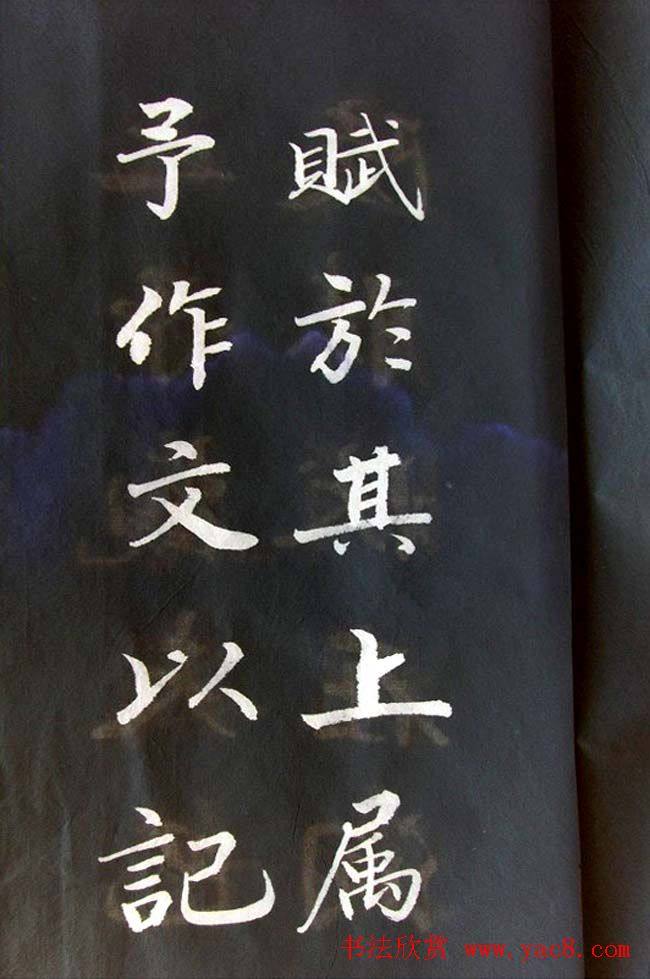 賦於其上属
予作文以記
书法欣赏 www.yac8.com